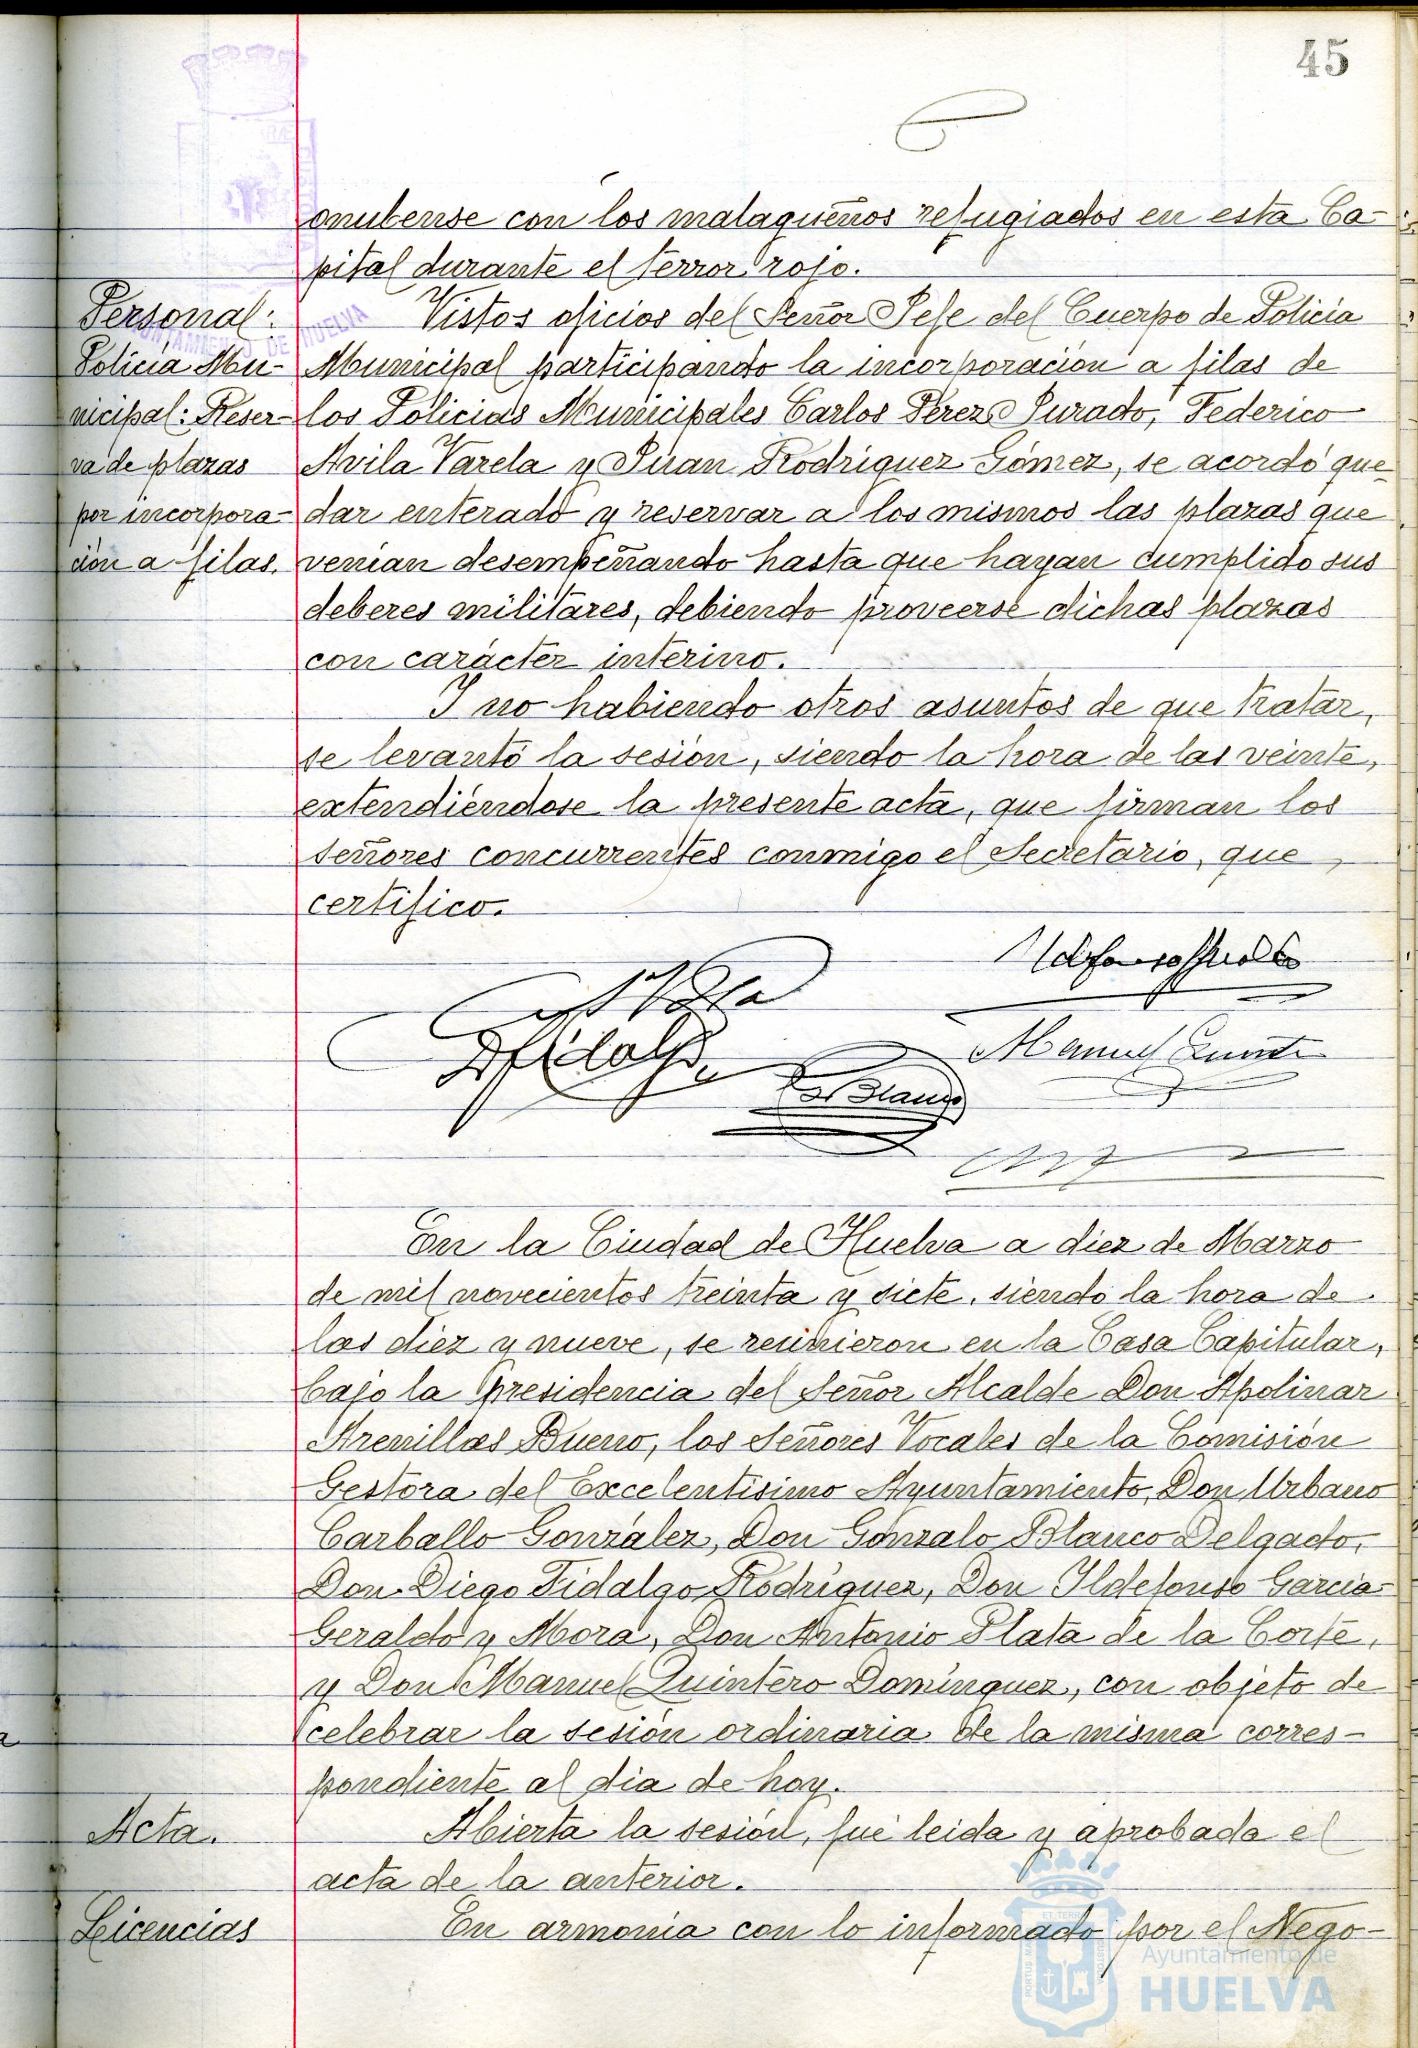 45
onubense con los malagueños refugiados en esta Ca-
pital durante el terror rojo.
Personal:
Policía Mu-
nicipal: Reser-
va de plazas
por incorpora-
ción a filas.
Vistos oficios del Señor Jefe del Cuerpo de Policía
Municipal participando la incorporación a filas de
los Policias Municipales Carlos Pérez Jurado, Federico
Avila Varela y Juan Rodríguez Gómez, se acordó que-
dar enterado y reservar a los mismos las plazas que
venían desempeñando hasta que hayan cumplido sus
deberes militares, debiendo proveerse dichas plazas
con carácter interino.
Y no habiendo otros asuntos de que tratar,
se levantó la sesión, siendo la hora de las veinte,
extendiéndose la presente acta, que firman los
señores concurrentes conmigo el Secretario, que
certifico.
DFidalgo
Manuel Quintero
G Blanco
En la Ciudad de Huelva a diez de Marzo
de mil novecientos treinta y siete, siendo la hora de
las diez y nueve, se reunieron en la Casa Capitular,
bajo la presidencia del Señor Alcalde Don Apolinar
Arenillas Bueno, los Señores Vocales de la Comisión
Gestora del Excelentísimo Ayuntamiento, Don Urbano
Carballo González, Don Gonzalo Blanco Delgado,
Don Diego Fidalgo Rodríguez, Don Ildefonso García-
Geraldo y Mora, Don Antonio Plata de la Corte,
y Don Manuel Quintero Domínguez, con objeto de
celebrar la sesión ordinaria de la misma corres-
pondiente al dia de hoy.
Acta.
Abierta la sesión, fué leida y aprobada el
acta de la anterior.
Licencias
En armonía con lo informado por el Nego-
AYUNTAMIENTO DE HUELVA
Ayuntamiento de
HUELVA